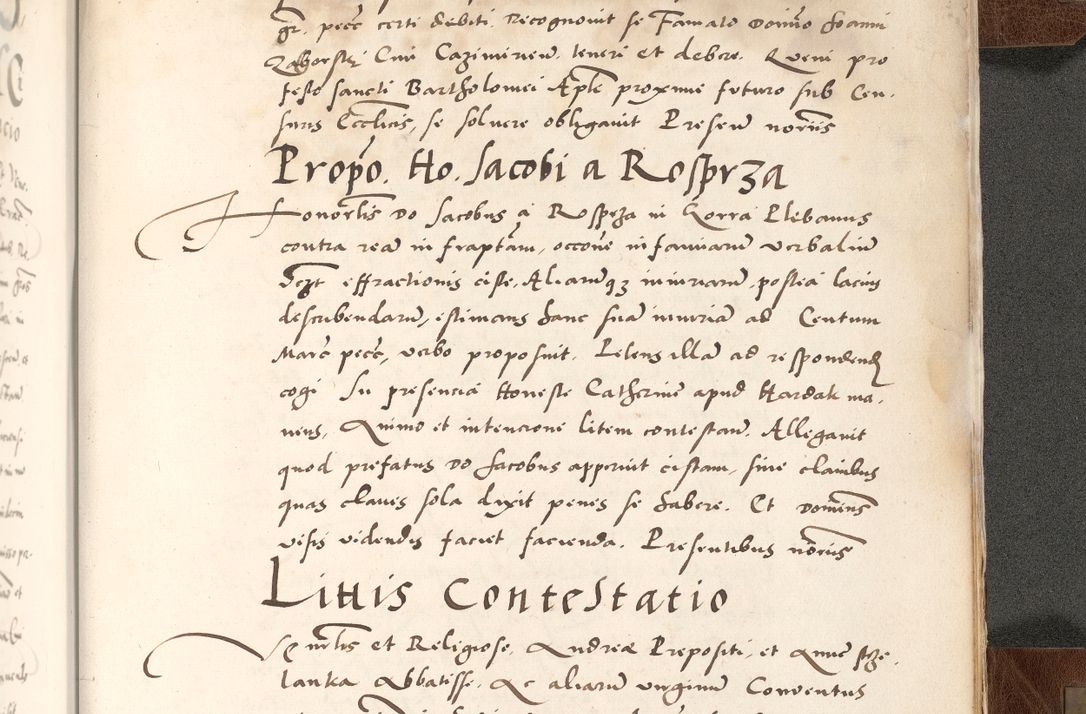 gr. pecc certi debiti. Recognovit se Famato Domino Joanni
Zaborski Civi Cazimirien. teneri et debere. Quem pro
festo sancti Bartholomei Apli proxime futuro sub Cen-
suris Ecclicis, se solvere obligavit Presen noriis
Propo. Ho. Jacobi a Rosprza
Honorlis Do Jacobus a Rosprza in Gorra Plebanus
contra rea in fraptam, occone infamiarum verbalium
Sczt effractionis ciste, Aliarumqz iniuriarum, postea lacius
describendarum, estimans hanc sua iniuria ad Centum
Marc pecc, verbo proposuit. Petens illa ad respondend
cogi In presencia Honeste Catherine apud Hardak ma-
nens, Animo et intencione litem contestan. Allegavit
quod prefatus Do Jacobus apperuit cistam, sine clavibus
quas claves sola dixit penes se habere. Et Domins
visis videndis faciet facienda. Presentibus noriis
Littis Contestatio
Venerlis et Religiose. Andreae Prepositi, et Anne Strze-
lanka Abbatisse. Ac aliarum virginum Conventus